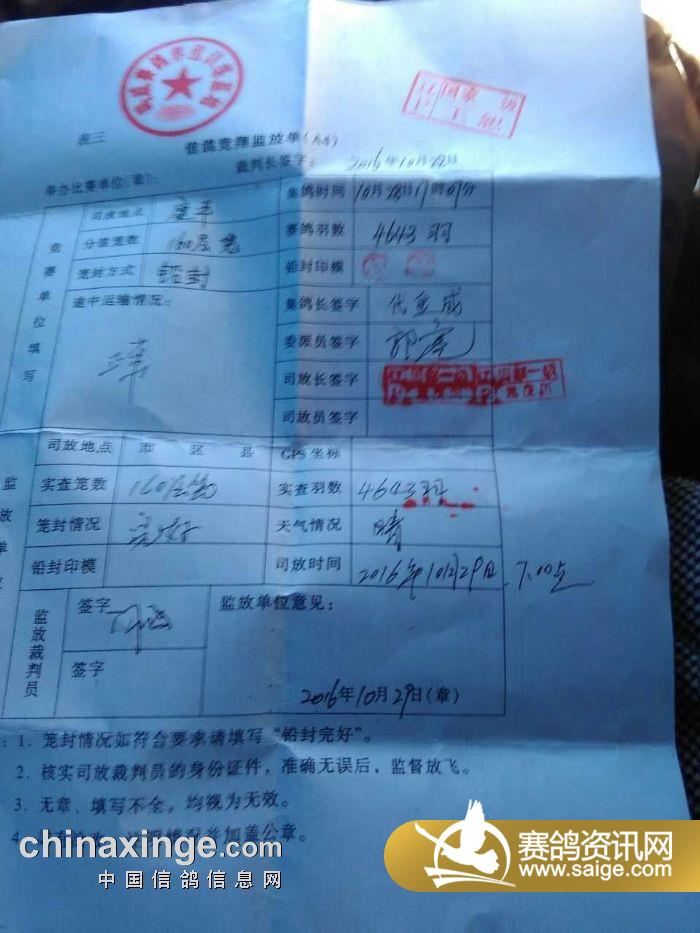 表三
信鸽竞翔监放单(A4)
裁判长签字: 2016年10月28日
举办比赛单位(章):
集鸽时间 10月28日17时07分
竞赛单位填写
司放地点
赛鸽羽数 4643羽
分装笼数 160层笼
笼封方式 铅封
铅封印模
途中运输情况:
正常
集鸽长签字
委派员签字
司放长签字
司放员签字
司放地点 市 区 县 GPS坐标
实查笼数 160层笼 实查羽数 4643羽
笼封情况 完好 天气情况 晴
铅封印模 司放时间 2016年10月29日 7.00点
监放裁判员
签字
监放单位意见:
签字
2016年10月29日(章)
1. 笼封情况如符合要求请填写“铅封完好”。
2. 核实司放裁判员的身份证件,准确无误后,监督放飞。
3. 无章、填写不全,均视为无效。
4 并加盖公章。
chinaxinge.com
中国信鸽信息网
赛鸽资讯网
www.saige.com